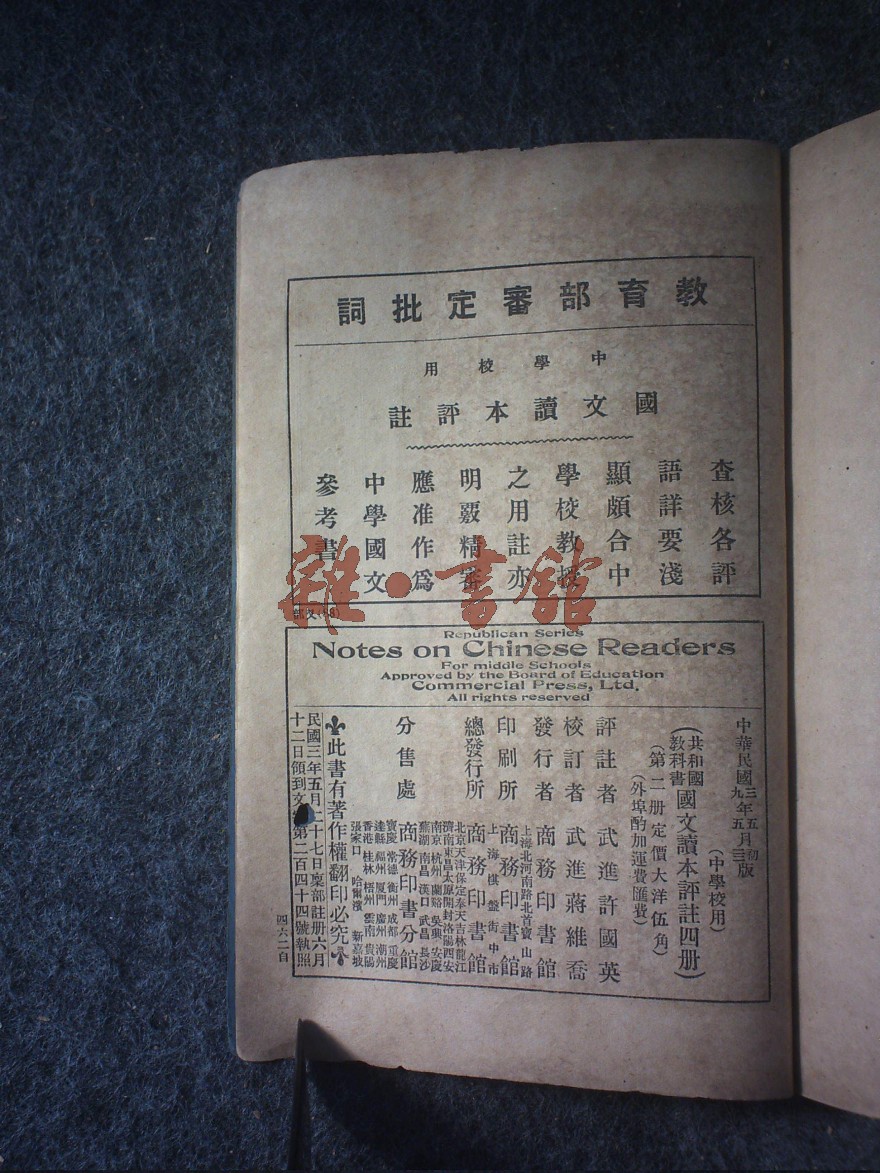 教育部審定批詞
中學校用
國文讀本評註
查核各評
語詳要淺
顯頗合中
學校教授
之用註亦
明覈精審
應准作爲
中學國文
參考書
雜·書館
Republican Series
Notes on Chinese Readers
For middle Schools
Approved by the Board of Education
Commercial Press, Ltd.
All rights reserved
中華民國三年五月初版
(中學校用)
(共和國教科書國文讀本評註四册)
(第二册定價大洋伍角)
(外埠酌加運費匯費)
評註者 武進許國英
校訂者 武進蔣維喬
發行者 商務印書館
上海北河南路北首寶山路
印刷所 商務印書館
上海棋盤街中市
總發行所 商務印書館
北京天津保定奉天吉林龍江
濟南東昌太原開封洛陽西安
南京杭州蘭谿吳興安慶
蕪湖南昌漢口武昌長沙
分售處 商務印書分館
寶慶常德衡州成都重慶
達縣福州厦門廣州潮州
香港桂林梧州雲南貴陽
張家口 哈爾濱 新嘉坡
此書有著作權翻印必究
民國三年五月二十七日稟部註册六月
十二日領到文 第二百四十四號執照
四六二自